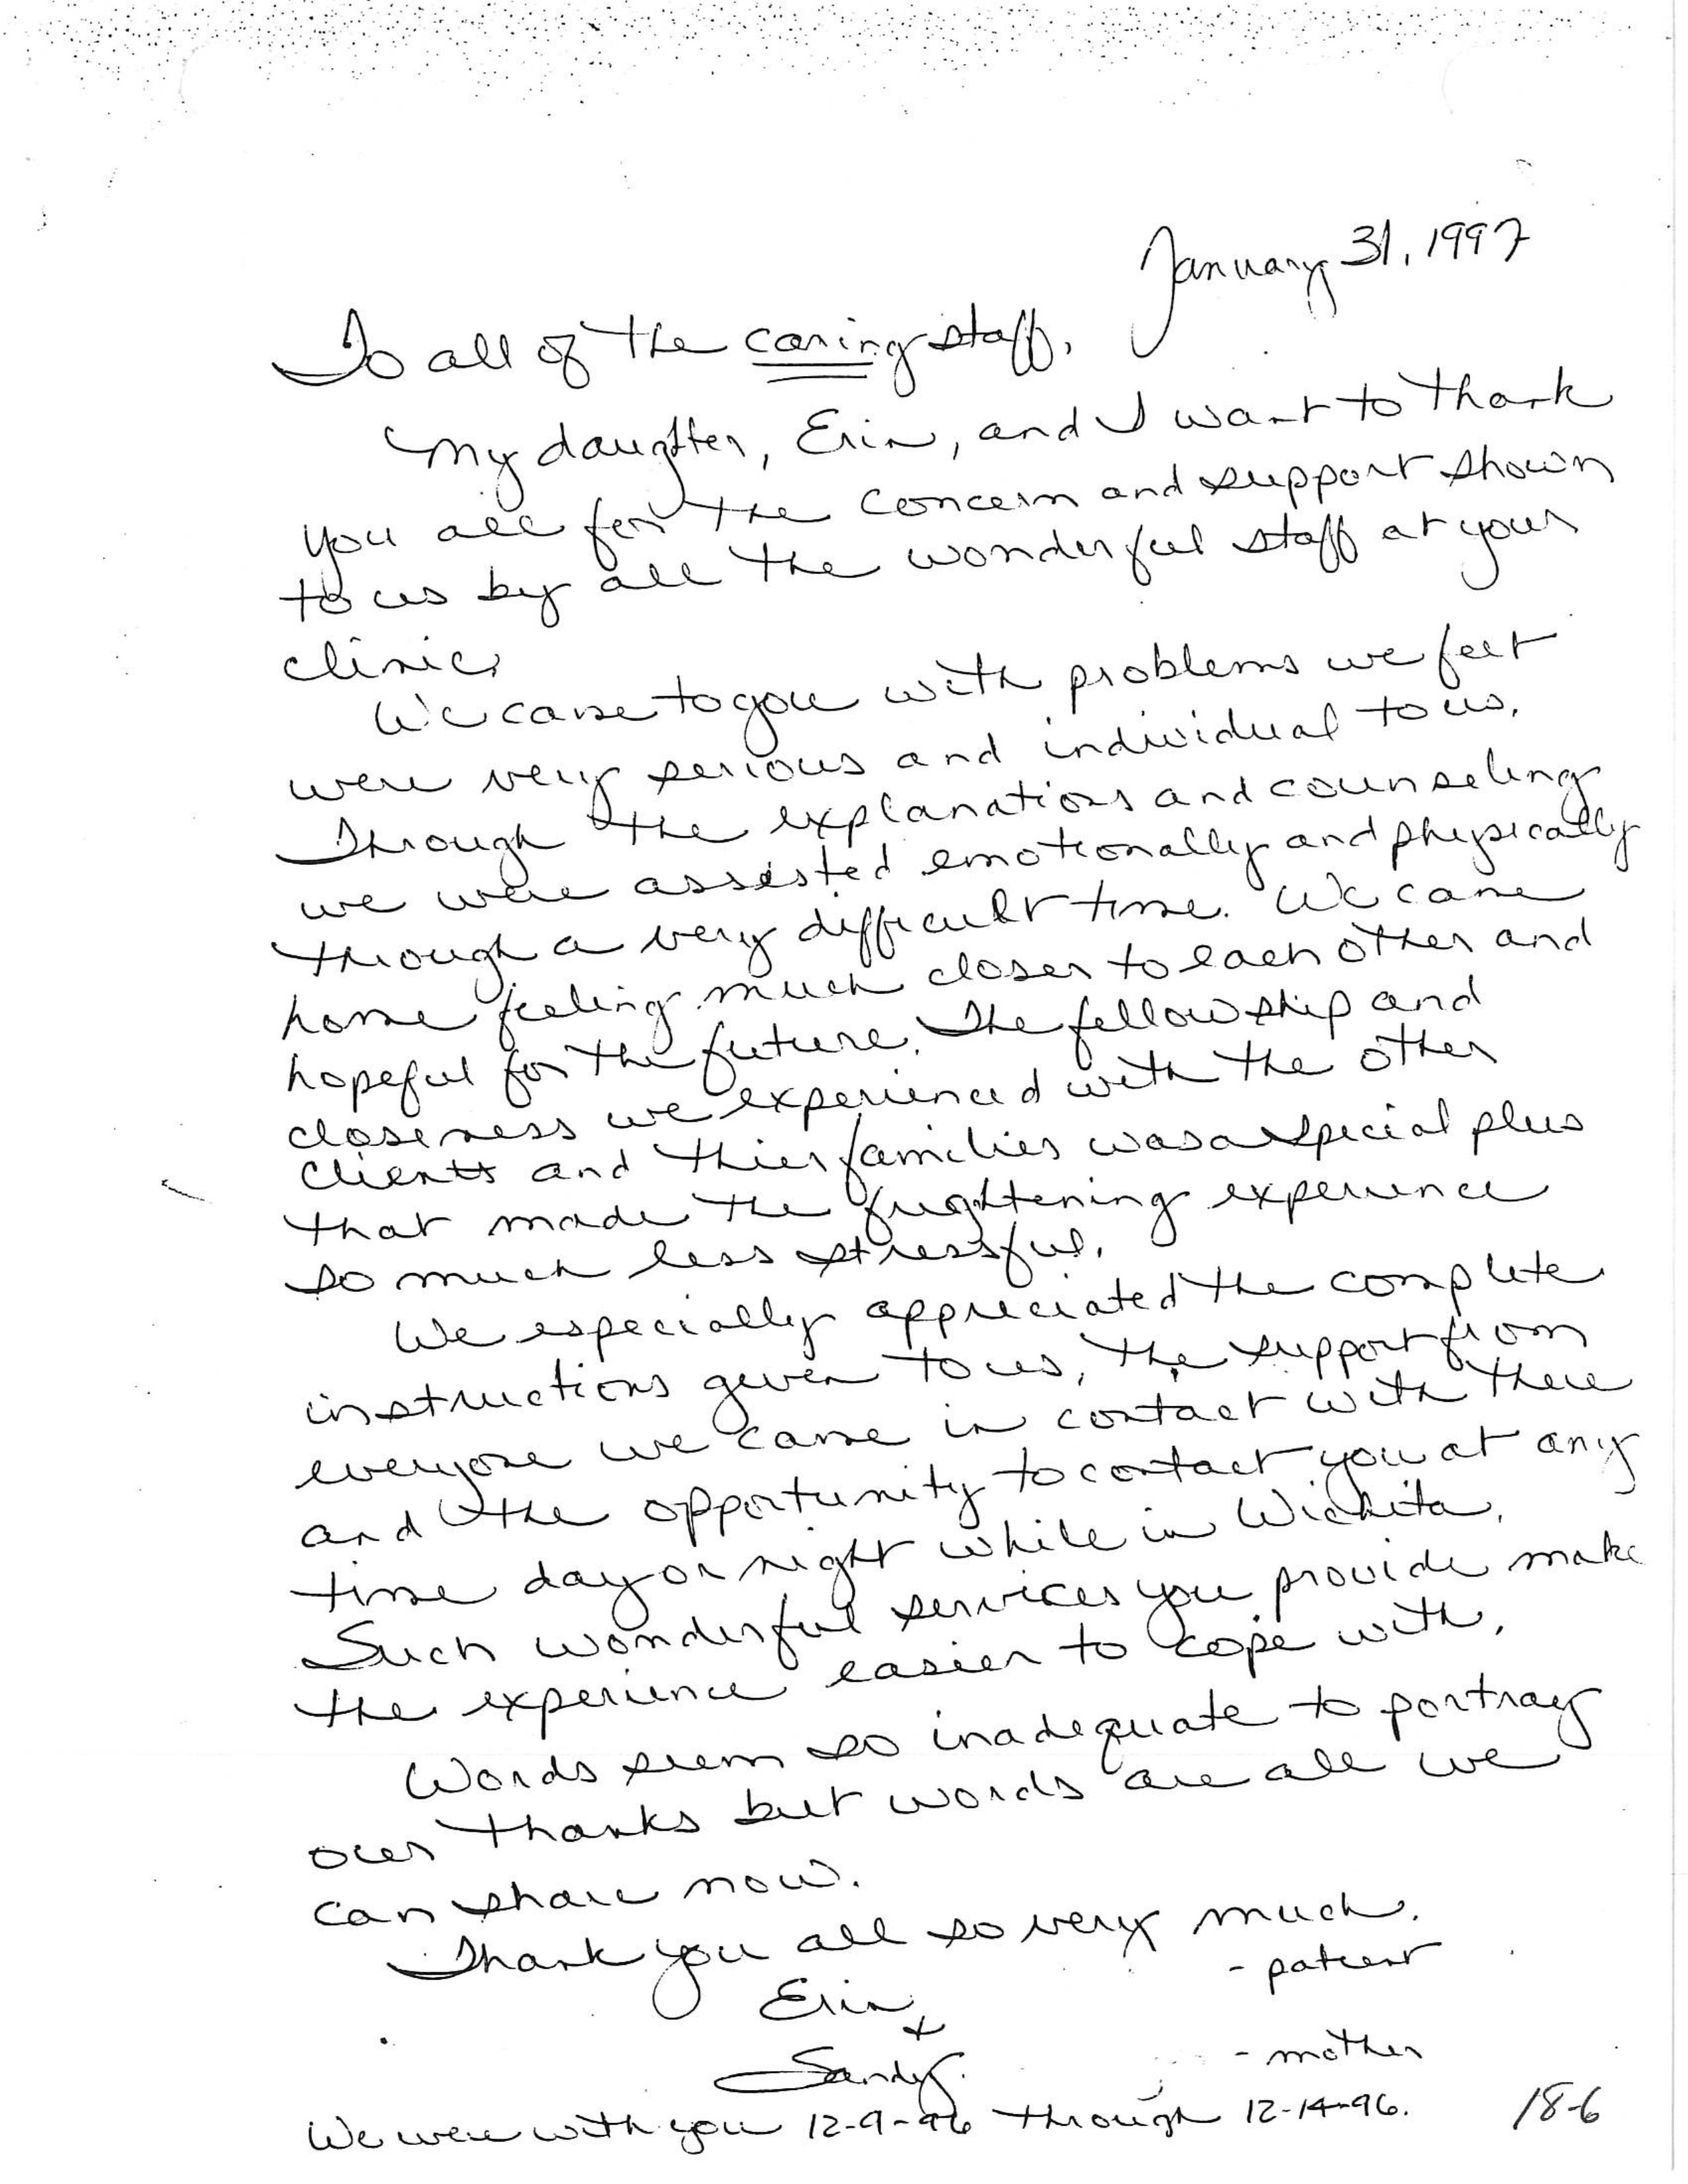 January 31, 1997
To all of the caring staff,
My daughter, Erin, and I want to thank
you all for the concern and support shown
to us by all the wonderful staff at your
clinic.
We came to you with problems we felt
were very serious and individual to us.
Through the explanations and counseling
we were assisted emotionally and physically
through a very difficult time. We came
home feeling much closer to each other and
hopeful for the future. The fellowship and
closeness we experienced with the other
clients and thier families was a special plus
that made the frightening experience
so much less stressful.
We especially appreciated the complete
instructions given to us, the support from
everyone we came in contact with there
and the opportunity to contact you at any
time day or night while in Wichita.
Such wonderful services you provide make
the experience easier to cope with.
Words seem so inadequate to portray
our thanks but words are all we
can share now.
Thank you all so very much.
Erin - patient
+
Sandy - mother
We were with you 12-9-96 through 12-14-96.
18-6